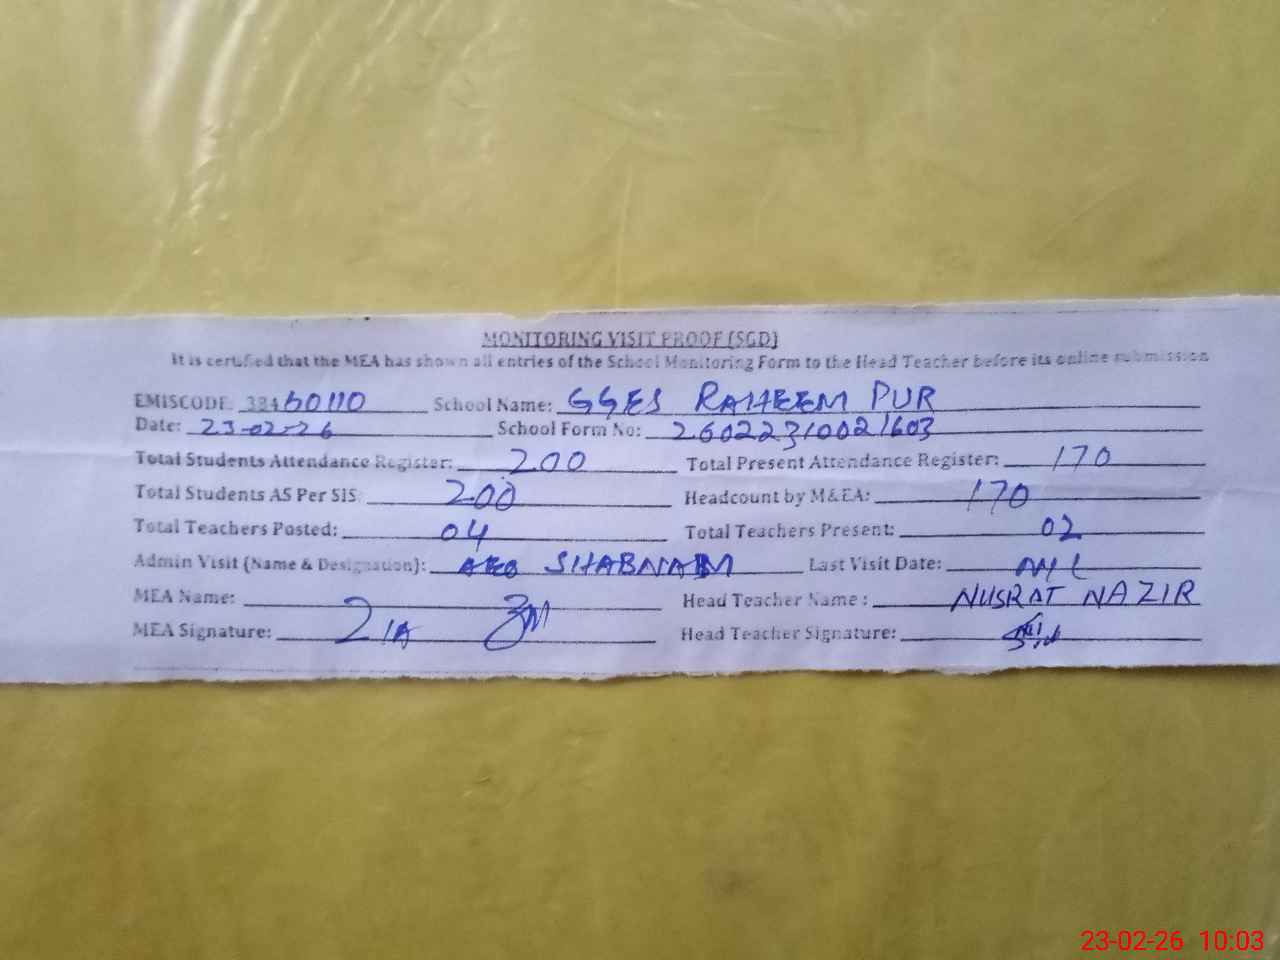 MONITORING VISIT PROOF (SGD)
It is certified that the MEA has shown all entries of the School Monitoring Form to the Head Teacher before its online submission
EMISCODE: 38460110 School Name: GGES RAHEEM PUR
Date: 23-02-26 School Form No: 26022310021603
Total Students Attendance Register: 200 Total Present Attendance Register: 170
Total Students AS Per SIS: 200 Headcount by M&EA: 170
Total Teachers Posted: 04 Total Teachers Present: 02
Admin Visit (Name & Designation): AEO SHABNAM Last Visit Date: NIL
MEA Name: Head Teacher Name : NUSRAT NAZIR
MEA Signature: Head Teacher Signature:
23-02-26 10:03